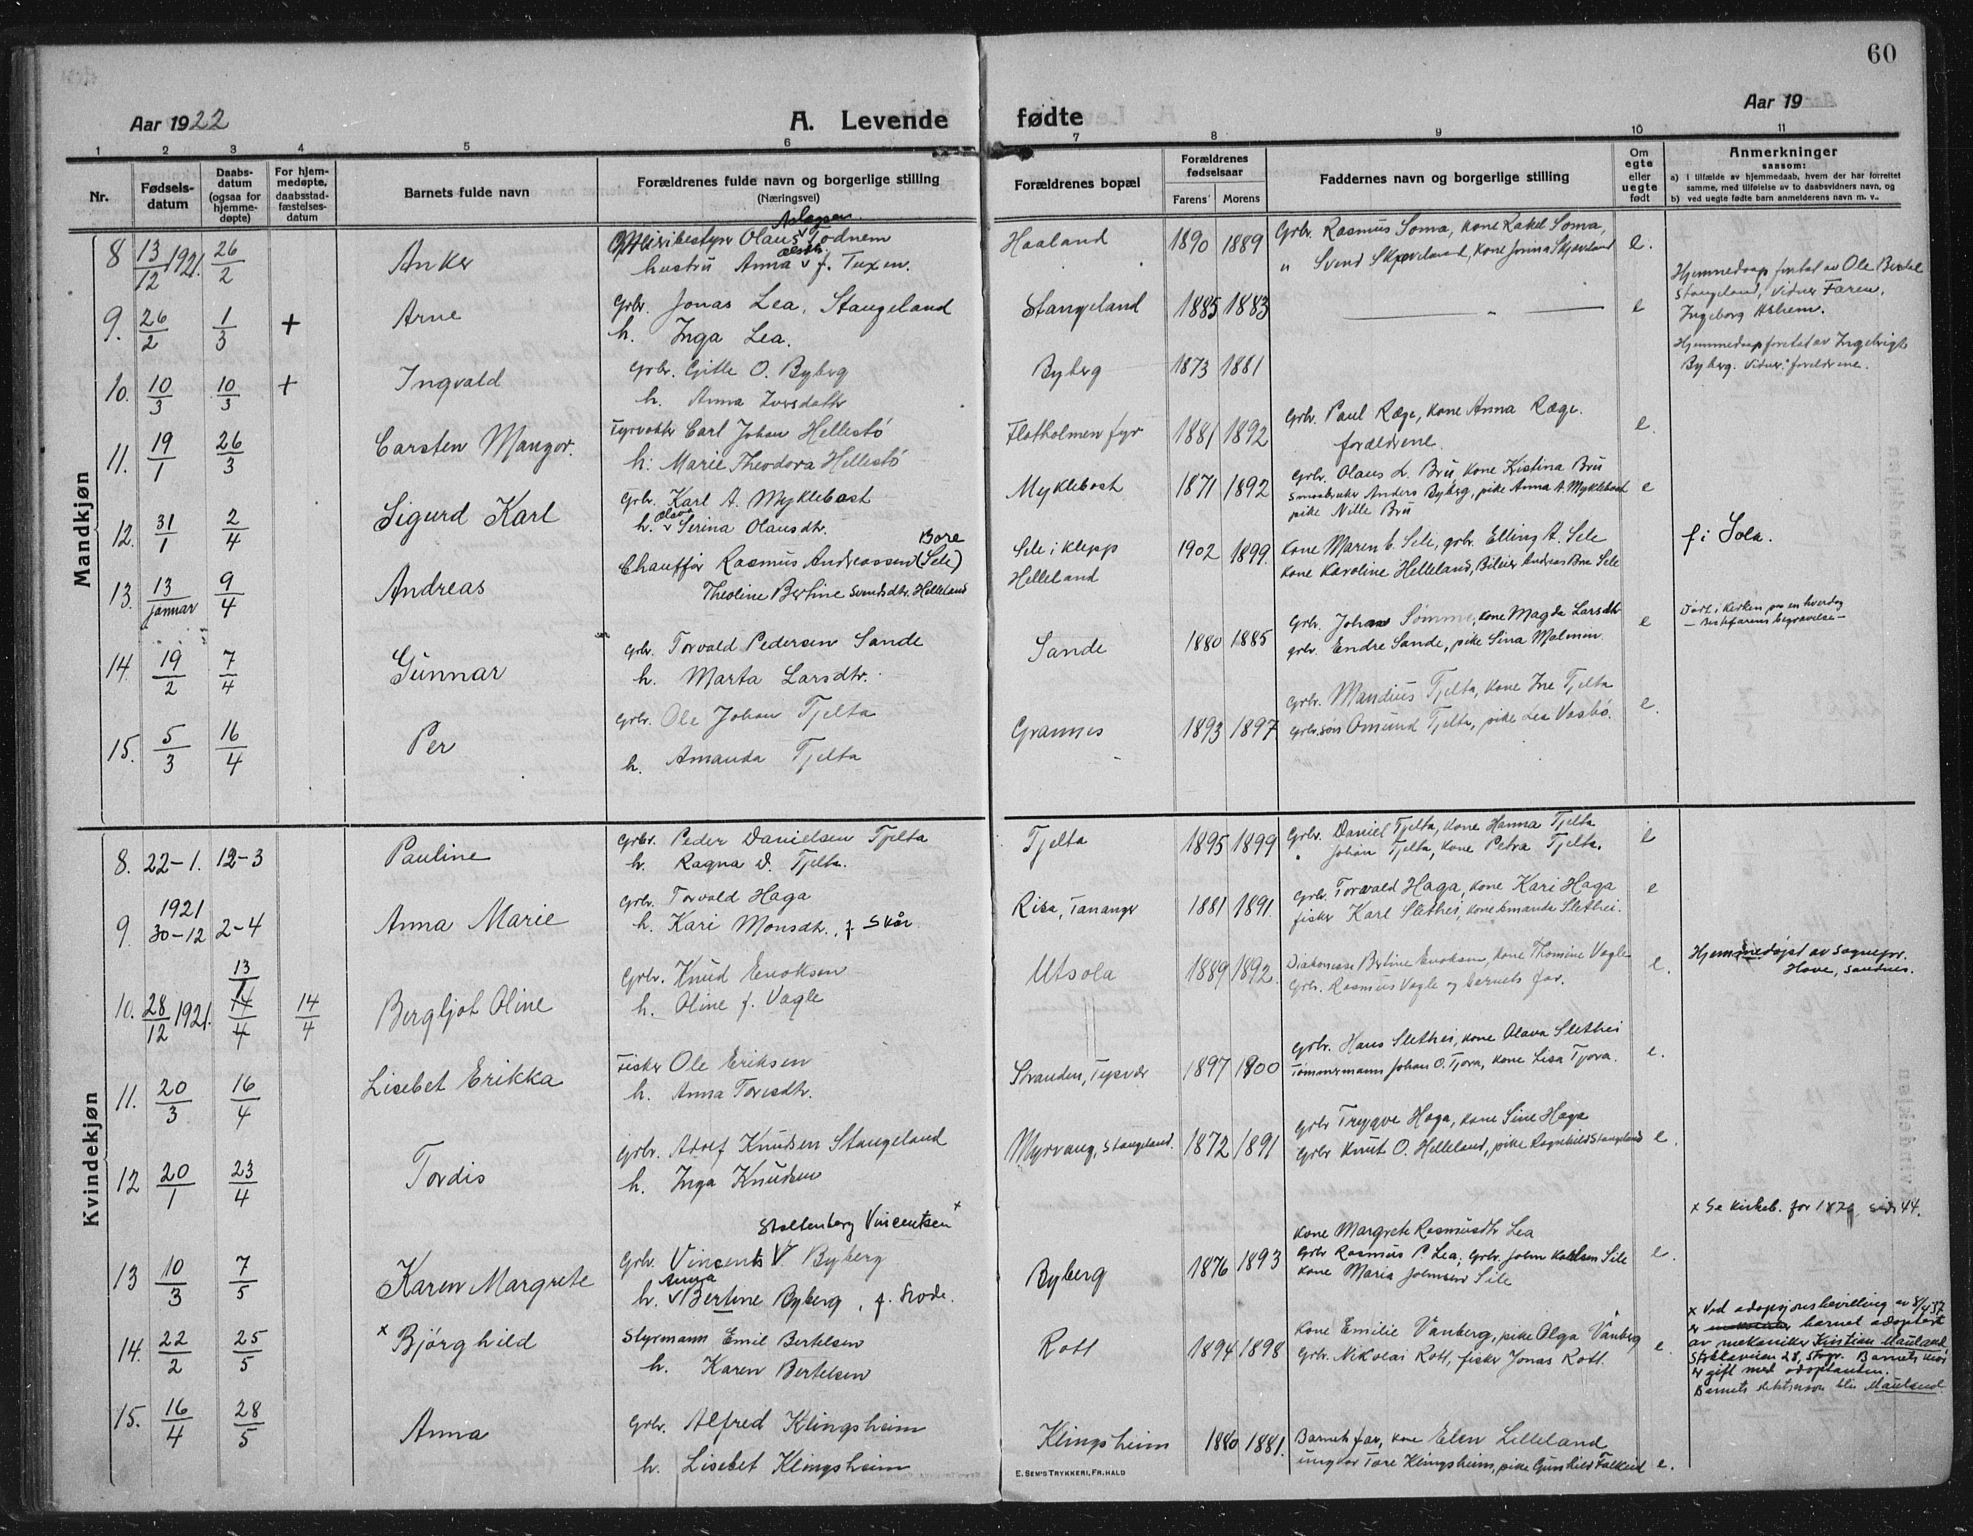 60
Aar 1922
A. Levende fødte
Aar 19
1 2 3 4 5 6 7 8 9 10 11
Nr.
Fødsels-datum
Daabs-datum (ogsaa for hjemme-døpte)
For hjem-medøpte, daabsstad-fæstelses-datum
Barnets fulde navn
Forældrenes fulde navn og borgerlige stilling
(Næringsvei)
Forældrenes bopæl
Forældrenes fødselsaar
Farens Morens
Faddernes navn og borgerlige stilling
Om egte eller uegte født
Anmerkninger
saasom:
a) I tilfælde av hjemmedaab, hvem der har forrettet samme, med tilføielse av to daabsvidners navn, og
b) ved uegte fødte barn anmelderens navn m. v.
Mandkjøn
Aslagsen
8 13/12 1921. 26/2 Anker Olaus v Todnem Haaland 1890 1889 Grbr. Rasmus Soma, kone Rakel Soma, e.
hustru Anna v f. Tuxen. " Svend Skjæveland, kone Jonna Skjæveland
9. 26/2 1/3 + Arne Grbr. Jonas Lea, Stangeland Stangeland 1885 1883 — " — e Hjemmedaap foretat av Ole Berdal
h. Inga Lea. Stangeland, vidner Faren,
Ingeborg Ashem.
10. 10/3 10/3 + Ingvald Grbr. Gitle O. Byberg Byberg 1873 1881 Hjemmedaap foretat av Ingebrigt
h. Anna Iversdatter Byberg. Vidner: foreldrene.
11. 19/1 26/3 Carsten Mangor. Fyrvokter Carl Johan Hellestö Flatholmen fyr 1881 1892 Grbr. Paul Ræge, kone Anna Ræge. e.
h. Marie Theodora Hellestö foreldrene.
12. 31/1 2/4 Sigurd Karl Grbr. Karl A. Myklebost Myklebost 1871 1892 Grbr. Olaus L. Bru kone Kistina Bru e
h. Olava v Serina Olausdtr. Smaabruker Anders Byberg, pike Anna A. Myklebost
pike Nille Bru
13. 13/januar 9/4 Andreas Chauffør Rasmus Andreassen (Sele) Bore Sele i Klepp 1902 1899. Kone Maren E. Sele, grbr. Elling A. Sele f i Sola.
Theoline Bertine Svendsdtr. Helleland Helleland kone Karoline Helleland, Bileier Andreas Bore Sele
14. 19/2 7/4 Gunnar grbr. Torvald Pedersen Sande Sande 1880 1885 Grbr. Johan Sømme, kone Magda Larsdtr e Døbt i kirken paa en hverdag
h. Marta Larsdtr. grbr. Endre Sande, pike Sina Malmin. — Bestefarens begravelse —
15. 5/3 16/4 Per Grbr. Ole Johan Tjelta Grannes 1893 1897 Grbr. Mandius Tjelta, kone Ine Tjelta e.
h. Amanda Tjelta grbr.søn Omund Tjelta, pike Lea Vasbö.
Kvindekjøn
8. 22-1. 12-3 Pauline Grbr. Peder Danielsen Tjelta Tjelta 1895 1899 Grbr. Daniel Tjelta, kone Hanna Tjelta e
h. Ragna D. Tjelta. " Johan Tjelta, kone Petra Tjelta.
9. 1921 30-12 2-4 Anna Marie Grbr. Torvald Haga Risa, Tananger 1881 1891. Grbr. Torvald Haga, kone Kari Haga e
h. Kari Monsdtr., f. Skår. fisker Karl Slethei, kone Amanda Slethei.
10. 28/12 1921. 13/1 14/4 14/4 Bergljot Oline Grbr. Knud Enoksen Utsola 1889 1892. Diakonisse Bertine Enoksen, kone Thomine Vagle e. Hjemmedøpt av sognepr.
h. Oline f. Vagle Grbr. Rasmus Vagle og barnets far. Hove, Sandnes.
11. 20/3 16/4 Lisebet Erikka Fisker Ole Eriksen Stranden, Tysvær 1897 1900 Grbr. Hans Slethei, kone Olava Slethei e.
h. Anna Toresdtr. Tømmermann Johan O. Tjora, kone Lisa Tjora.
12 20/1 23/4 Tordis Grbr. Adolf Knudsen Stangeland Myrvang, Stangeland. 1872 1891 Grbr Trygve Haga, kone Sine Haga e.
h. Inga Knudsen Grbr Knut O. Helleland, pike Ragnhild Stangeland
Stoltenberg Vincentsen x x Se kirkeb. for side 44.
13 10/3 7/5 Karen Margrete Grbr. Vincents V. Byberg Byberg 1876 1893 Kone Margrete Rasmusdtr Lea e.
h. Anna v Bertine Byberg, f. Grbr Rasmus P. Lea, Grbr. John Sele
kone Maria Johnsen Sele
14. 22/2 25/5 x Bjørghild Styrmann Emil Bertelsen Rott 1894 1898 Kone Emilie Vanberg, pike Olga Vånberg e. x Ved adopsjonsbevilling av 8/4 37
h. Karen Bertelsen Grbr. Nikolai Rott, fisker Jonas Rott. er barnet adoptert
av mekaniker Kristian Mauland
Stvgr. Barnets mor
er gift med adoptanten.
Barnets slektsnavn blir Mauland.
15. 16/4 28/5 Anna Grbr. Alfred Klingsheim Klingsheim 1880 1881. Barnets far, kone Elen Lilleland
h. Lisebet Klingsheim ungkar Tore Klingsheim, pike Gunhild Falkeid e.
E. SEM'S TRYKKERI, FR.HALD